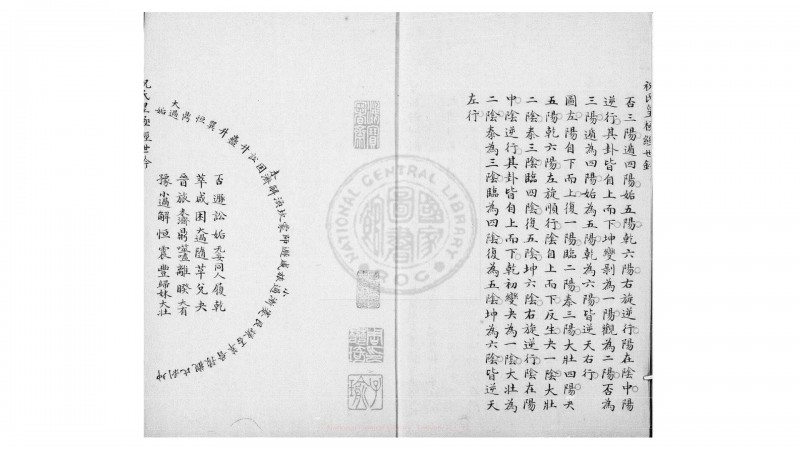 祝氏皇極經世鈐
否三陽遯四陽姤五陽乾六陽右旋逆行陽在陰中陽
逆行其卦皆自上而下坤變剝為一陽觀為二陽否為
三陽遯為四陽姤為五陽乾為六陽皆逆天右行
圖左陽自下而上復一陽臨二陽泰三陽大壯四陽夬
五陽乾六陽左旋順行陰自上而下反生夬一陰大壯
二陰泰三陰臨四陰復五陰坤六陰右旋逆行陰在陽
中陰逆行其卦皆自上而下乾初變夬為一陰大壯為
二陰泰為三陰臨為四陰復為五陰坤為六陰皆逆天
左行
NATIONAL CENTRAL LIBRARY
國家圖書
R.O.C.
姤大過鼎恒巽井蠱升訟困
未濟解渙
蒙師遯咸旅小過漸蹇艮謙否萃晉豫觀比剝坤
否遯訟姤无妄同人履乾
萃咸困大過隨革兌夬
晉旅未濟鼎噬嗑離睽大有
豫小過解恒震豐歸妹大壯
祝氏皇極經世鈐